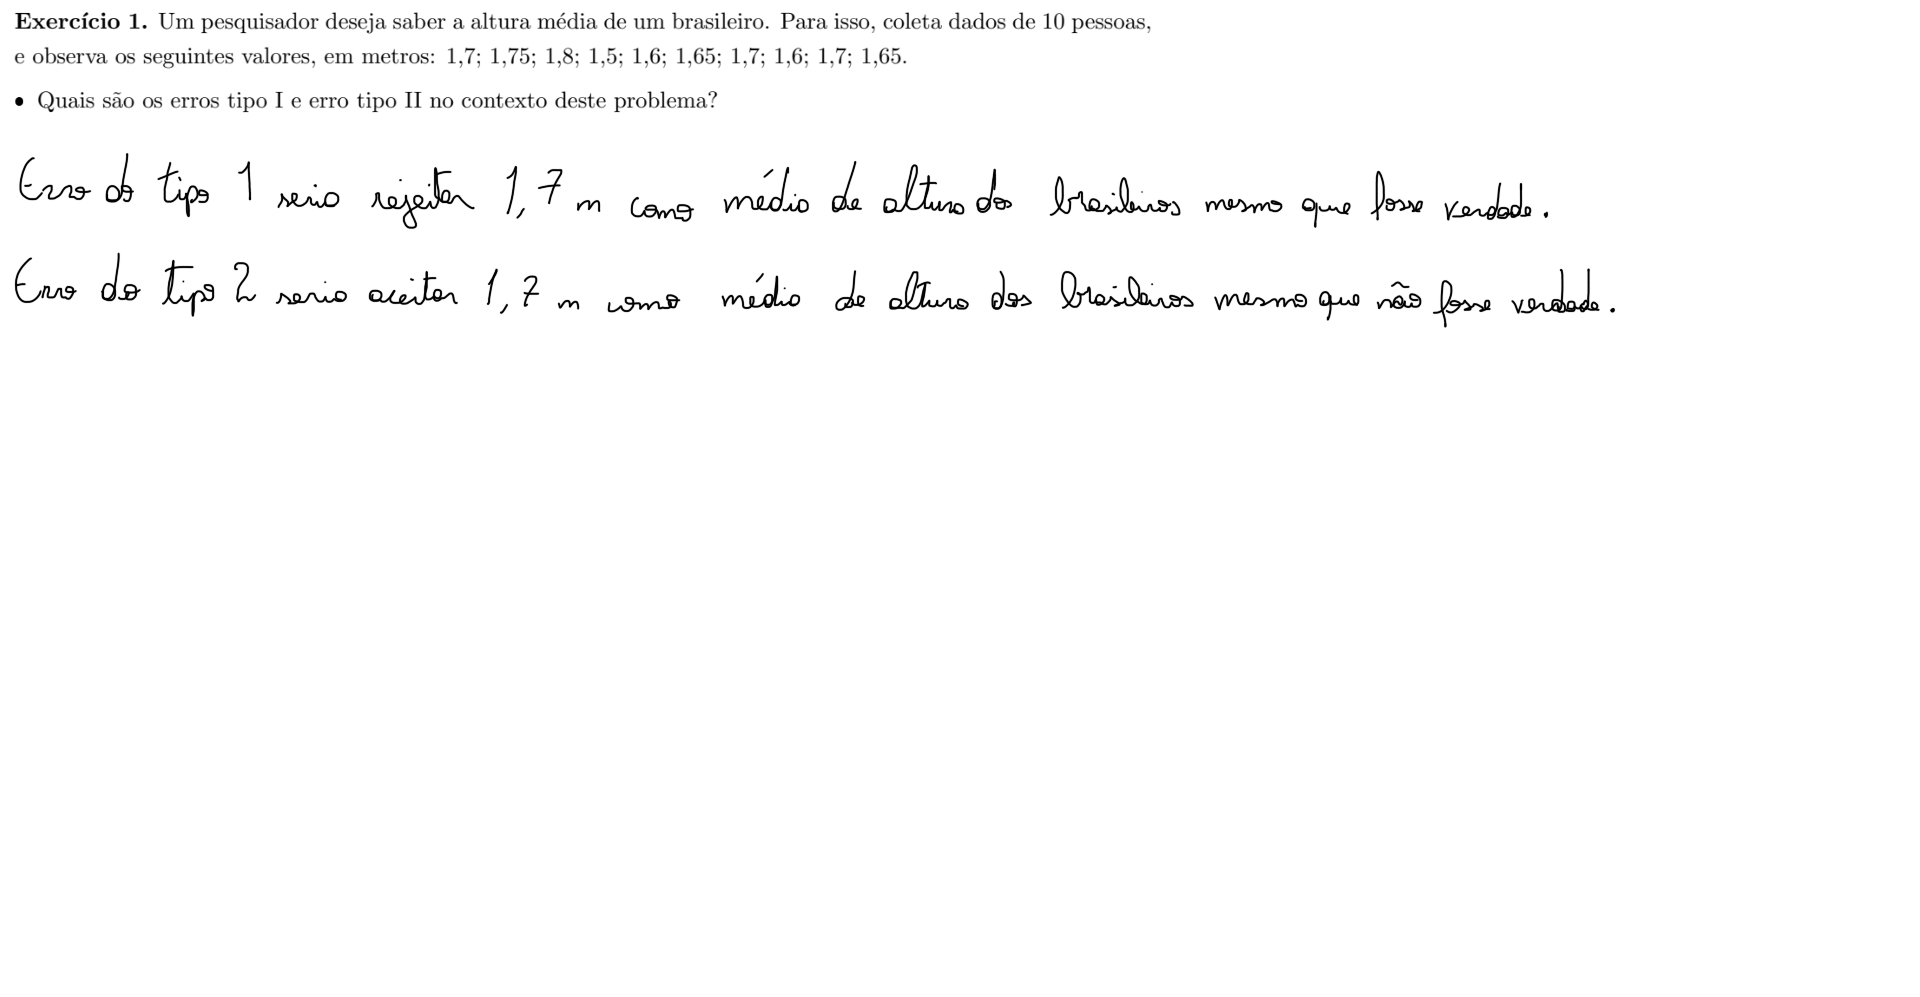 Exercício 1. Um pesquisador deseja saber a altura média de um brasileiro. Para isso, coleta dados de 10 pessoas,
e observa os seguintes valores, em metros: 1,7; 1,75; 1,8; 1,5; 1,6; 1,65; 1,7; 1,6; 1,7; 1,65.
• Quais são os erros tipo I e erro tipo II no contexto deste problema?
Erro do tipo 1 seria rejeitar 1,7 m como média de altura dos brasileiros mesmo que fosse verdade.
Erro do tipo 2 seria aceitar 1,7 m como média de altura dos brasileiros mesmo que não fosse verdade.